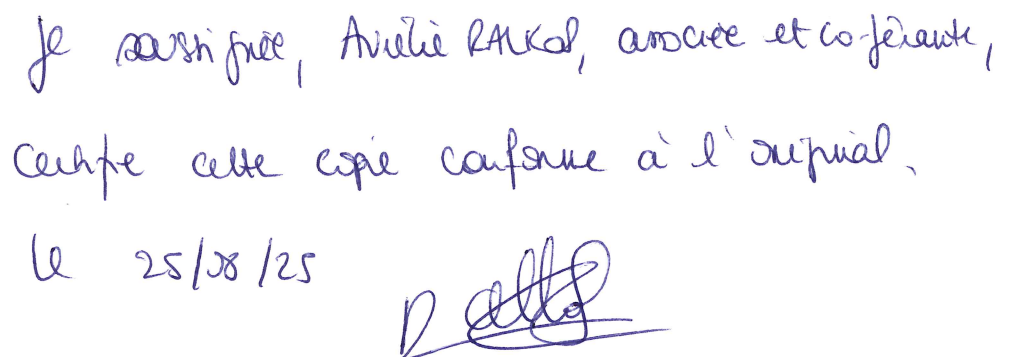 Je soussignée, Aurélie RALKOS, associée et co-gérante,
certifie cette copie conforme à l'original.
le 25/08/25